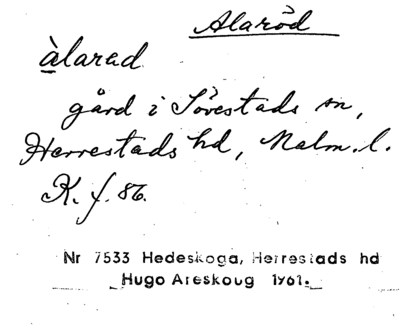 Alaröd
àlarad
gård i Sövestads sn,
Herrestads hd, Malm. l.
K. f. 86.
Nr 7533 Hedeskoga, Herrestads hd
Hugo Areskoug 1961.